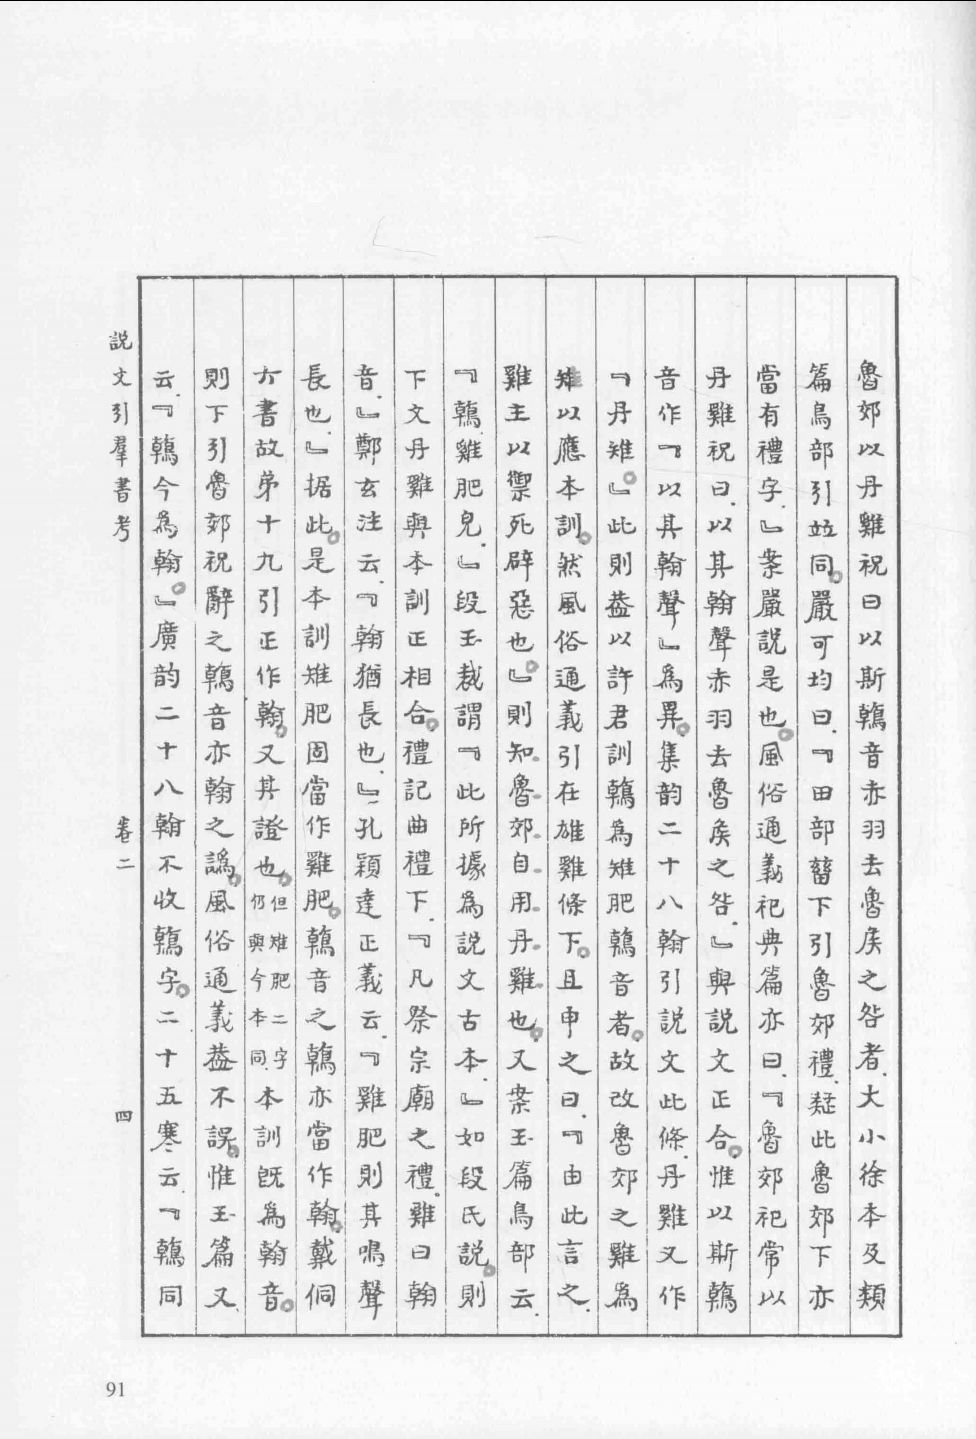 魯郊以丹雞祝曰以斯鶾音赤羽去魯矦之咎者.大小徐本及類
篇鳥部引竝同。嚴可均曰.『田部䕾下引魯郊禮.疑此魯郊下亦
當有禮字.』案嚴說是也。風俗通義祀典篇亦曰.『魯郊祀常以
丹雞祝曰.以其翰聲赤羽去魯矦之咎.』與說文正合。惟以斯鶾
音作『以其翰聲』為異。集韵二十八翰引說文此條.丹雞又作
『丹雉。』此則葢以許君訓鶾為雉肥鶾音者。故改魯郊之雞為
雉以應本訓。然風俗通義引在雄雞條下。且申之曰.『由此言之.
雞主以禦死辟惡也。』則知魯郊自用丹雞也。又案玉篇鳥部云.
『鶾雞肥皃.』段玉裁謂『此所據為說文古本.』如段氏說。則
下文丹雞與本訓正相合。禮記曲禮下.『凡祭宗廟之禮.雞曰翰
音.』鄭玄注云.『翰猶長也.』孔穎達正義云.『雞肥則其鳴聲
長也.』据此。是本訓雉肥固當作雞肥。鶾音之鶾亦當作翰。戴侗
六書故弟十九引正作翰。又其證也。但雉肥二字仍與今本同.本訓旣為翰音。
則下引魯郊祝辭之鶾音亦翰之譌。風俗通義葢不誤。惟玉篇又
云.『鶾今為翰。』廣韵二十八翰不收鶾字。二十五寒云.『鶾同
說文引羣書考
卷二
四
91